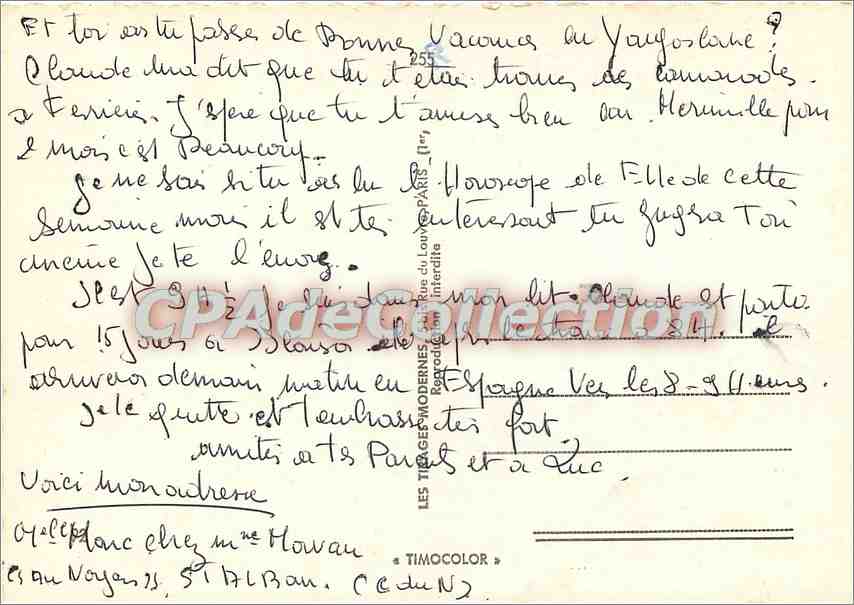 Et toi as tu passés de Bonnes Vacances en Yougoslavie ?
255
Claude m'a dit que tu t'étais trouvés des camarades.
a J'espère que tu t'amuses bien car pour
1 mois c'est Beaucoup.
Je ne sais si tu as lu l'Horoscope de Elle de cette
Semaine mais il est très intéressant tu
je te l'envoie.
Il est 9 H ½ je suis dans mon lit. Claude est partie
pour 15 jours a le train a 8 H. et
arrivera demain matin en Espagne Vers les 8-9 Heures.
Je te quitte et t'embrasse très fort.
amitiés a tes Parents et a Luc.
Voici mon adresse
Marc chez Mme
du Noyer ST Alban. (C du N)
CPAdeCollection
LES TIRAGES MODERNES, Rue du Louvre, PARIS _ (1er)
Reproduction interdite
« TIMOCOLOR »